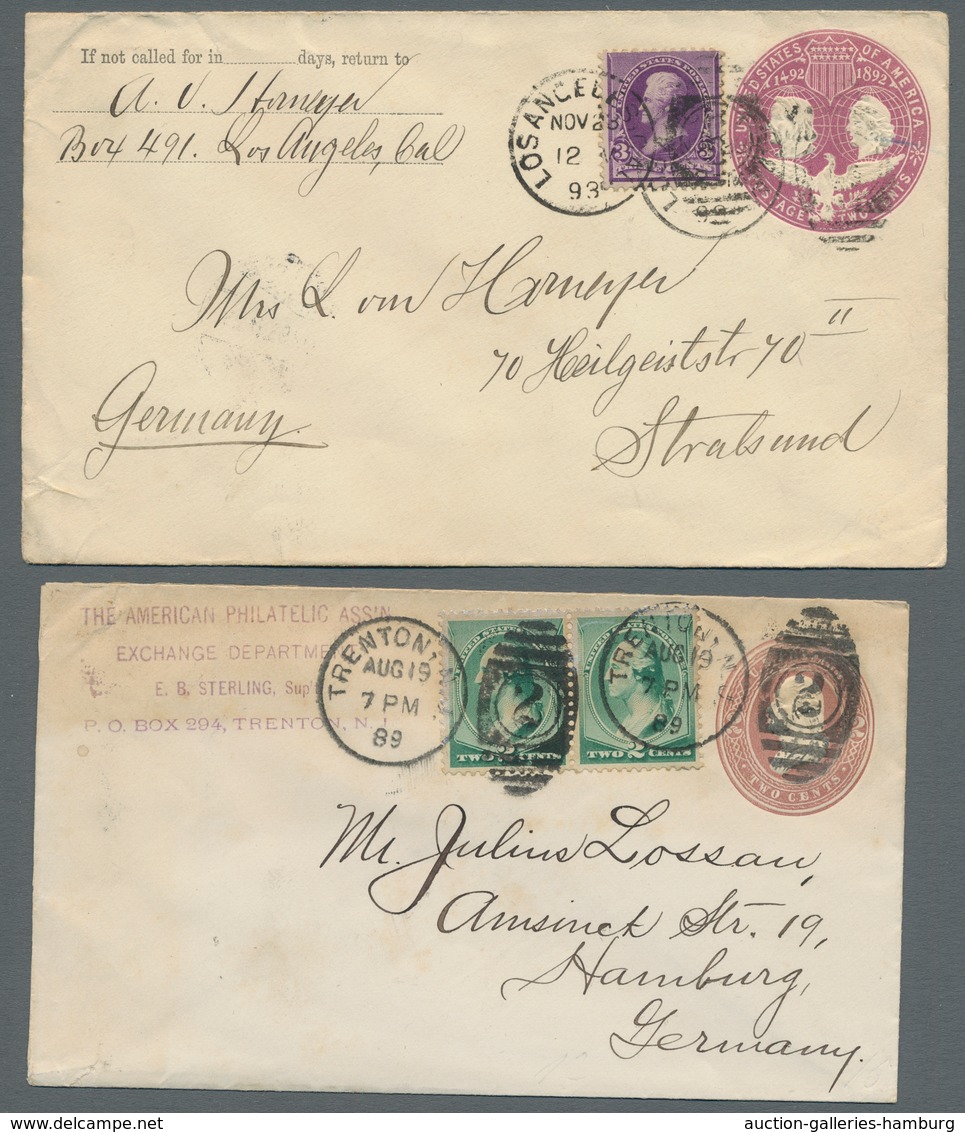 If not called for in days, return to
A. V. Horneyer
Box 491. Los Angeles, Cal
LOS ANGELE
NOV 28
12 M
93
UNITED STATES POSTAGE
3 3
UNITED STATES OF AMERICA.
1492 1892
POSTAGE TWO CENTS.
Mrs L. von Horneyer
70 Heilgeiststr 70 II
Germany
Stralsund
THE AMERICAN PHILATELIC ASS'N
EXCHANGE DEPARTME
E. B. STERLING, Sup'
P. O. BOX 294, TRENTON, N. J.
TRENTON, N.
AUG 19
7 PM
89
TWO CENTS
2
TWO 2 CENTS
TRENTON, N.
AUG 19
7 PM
89
2
TWO CENTS
Mr. Julius Lossau,
Amsinck Str. 19,
Hamburg,
Germany.
auction-galleries-hamburg